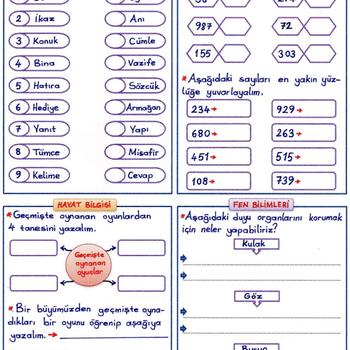 2 İkaz
Anı
3 Konuk
Cümle
4 Bina
Vazife
5 Hatıra
Sözcük
6 Hediye
Armağan
7 Yanıt
Yapı
8 Tümce
Misafir
9 Kelime
Cevap
987
72
155
303
*Aşağıdaki sayıları en yakın yüz-
lüğe yuvarlayalım.
234→
929→
680→
263→
451→
515→
108→
739→
HAYAT BİLGİSİ
*Geçmişte oynanan oyunlardan
4 tanesini yazalım.
Geçmişte
oynanan
oyunlar
*Bir büyüğümüzden geçmişte oyna-
dıkları bir oyunu öğrenip aşağıya
yazalım.→
FEN BİLİMLERİ
*Aşağıdaki duyu organlarını korumak
için neler yapabiliriz?
Kulak
Göz